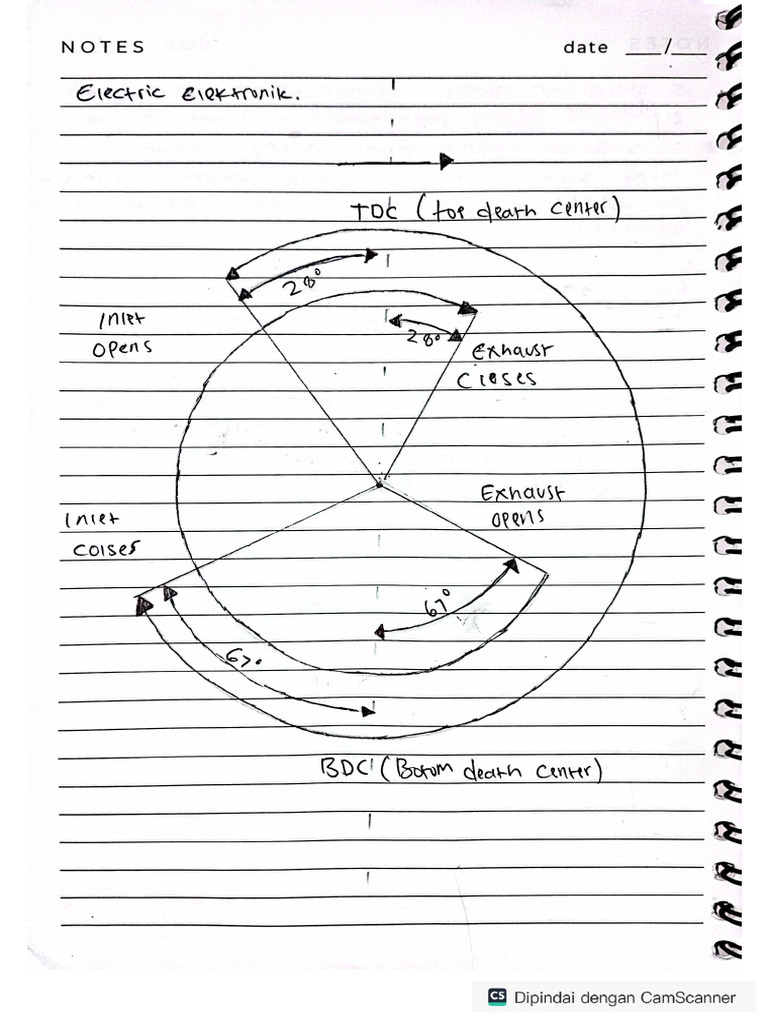 NOTES
date __/__
Electric elektronik.
TDC (top death center)
28°
Inlet
opens
28°
Exhaust
Closes
Exhaust
opens
Inlet
Colses
67°
67°
BDC (Botum death center)
CS Dipindai dengan CamScanner